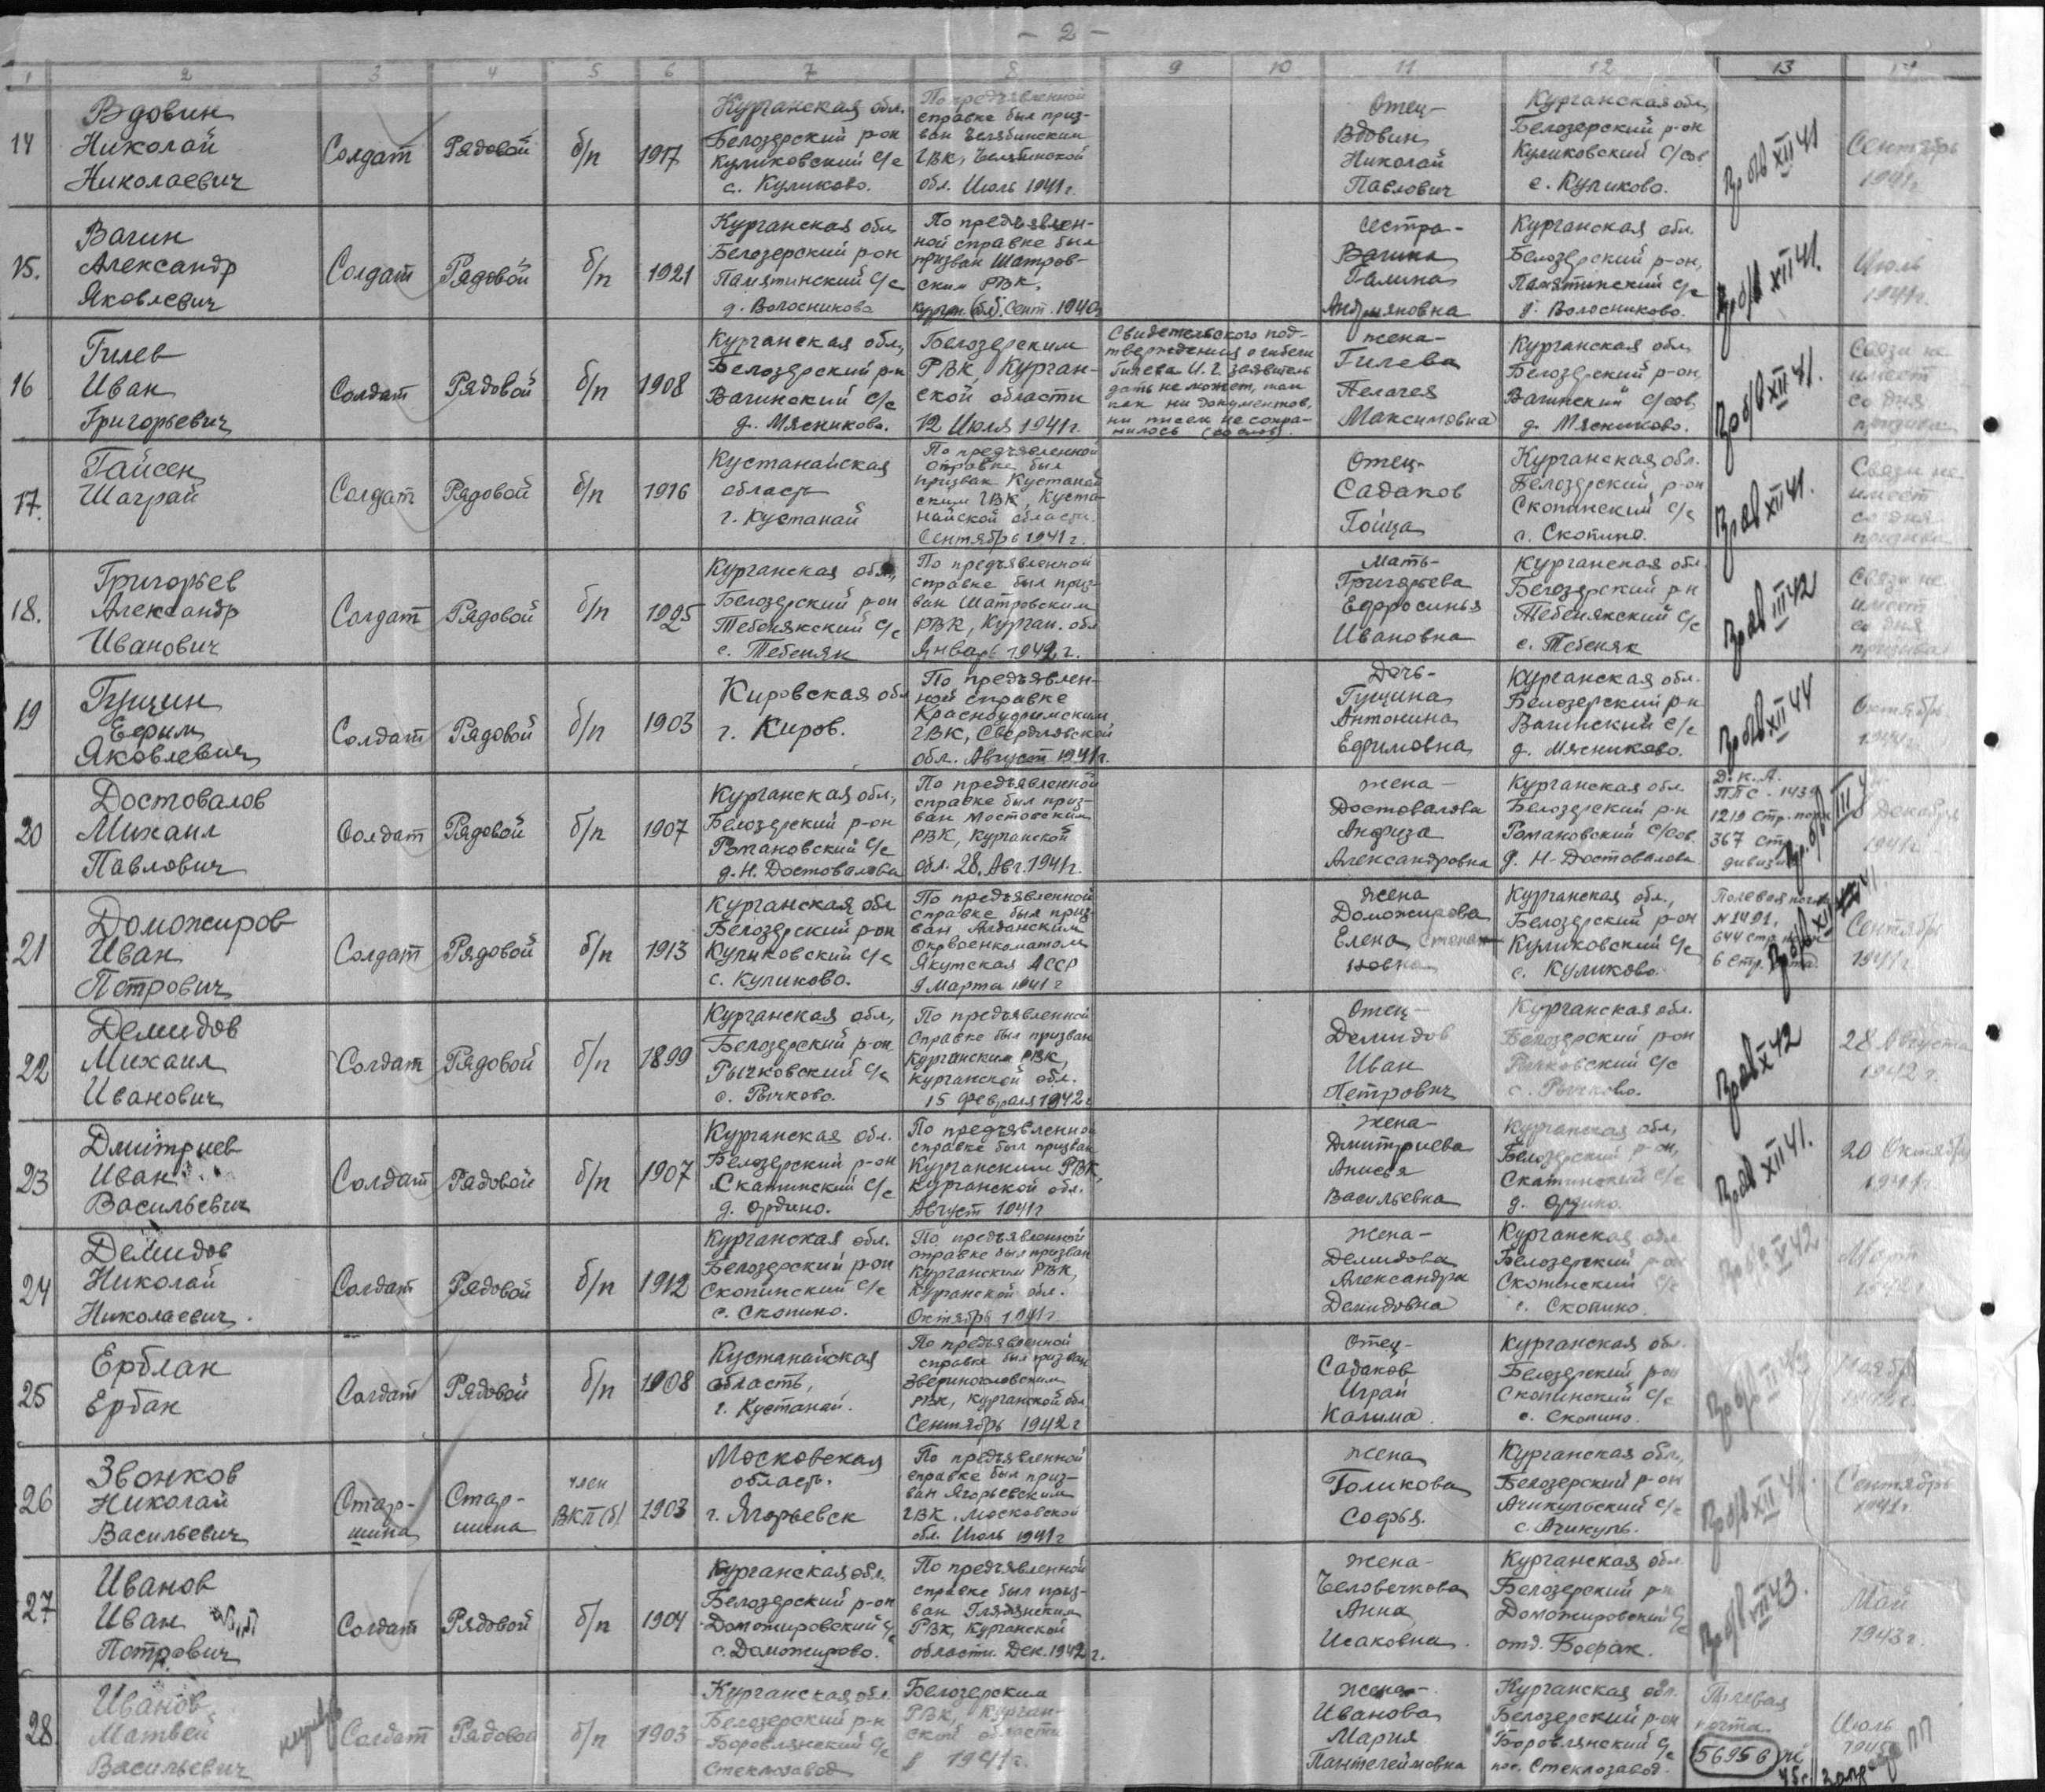 - 2 -
1 2 3 4 5 6 7 8 9 10 11 12 13 14
14
Вдовин
Николай
Николаевич
Солдат
Рядовой
б/п
1917
Курганская обл.
Белозерский р-он
Куликовский с/с
с. Куликово.
По предъявленной
справке был приз-
ван Челябинским
ГВК, Челябинской
обл. Июль 1941 г.
Отец-
Вдовин
Николай
Павлович
Курганская обл,
Белозерский р-он
Куликовский с/сов
с. Куликово.
XII 41
Сентябрь
1941 г.
15.
Вагин
Александр
Яковлевич
Солдат
Рядовой
б/п
1921
Курганская обл
Белозерский р-он
Памятинский с/с
д. Волосниково
По предъявлен-
ной справке был
призван Шатров-
ским РВК,
Курган. обл. Сент. 1940г
сестра-
Вагина
Галина
Андрияновна
Курганская обл.
Белозерский р-он,
Памятинский с/с
д. Волосниково.
XII 41.
Июль
1941г.
16
Гилев
Иван
Григорьевич
Солдат
Рядовой
б/п
1908
Курганская обл,
Белозерский р-н
Вагинский с/с
д. Мясниково.
Белозерским
РВК, Курган-
ской области
12 Июля 1941 г.
Свидетельского под-
тверждения о гибели
Гилева И. Г. заявитель
дать не может, так
как ни документов,
ни писем не сохра-
нилось (со слов).
жена-
Гилева
Пелагея
Максимовна
Курганская обл,
Белозерский р-он,
Вагинский с/сов
д. Мясниково.
XII 41.
Связи не
имеет
со дня
призыва
17.
Гайсен
Шаграй
Солдат
Рядовой
б/п
1916
Кустанайская
область
г. Кустанай
По предъявленной
справке был
призван Кустанай
ским ГВК, Куста-
найской области.
Сентябрь 1941 г.
Отец-
Садаков
Гойца
Курганская обл.
Белозерский р-он
Скопинский с/с
с. Скопино.
XII 41.
Связи не
имеет
со дня
призыва
18.
Григорьев
Александр
Иванович
Солдат
Рядовой
б/п
1925
Курганская обл,
Белозерский р-он
Тебенякский с/с
с. Тебеняк
По предъявленной
справке был приз-
ван Шатровским
РВК, Курган. обл
Январь 1942 г.
Мать-
Григорьева
Ефросинья
Ивановна
Курганская обл.
Белозерский р-н
Тебенякский с/с
с. Тебеняк
III 42
Связи не
имеет
со дня
призыва
19
Гущин
Ефим
Яковлевич
Солдат
Рядовой
б/п
1903
Кировская обл
г. Киров.
По предъявлен-
ной справке
ГВК, Свердловской
обл. Август 1941г.
Дочь-
Гущина
Антонина
Ефимовна
Курганская обл.
Белозерский р-н
Вагинский с/с
д. Мясниково.
XII 44
Октябрь
20
Достовалов
Михаил
Павлович
Солдат
Рядовой
б/п
1907
Курганская обл,
Белозерский р-он
Романовский с/с
д. Н. Достовалова
По предъявленной
справке был приз-
ван Мостовским
РВК, Курганской
обл. 28. Авг. 1941г.
жена-
Достовалова
Анфиза
Александровна
Курганская обл
Белозерский р-н
Романовский с/сов.
д. Н-Достовалова
Д. К. А.
ППС - 1439
1219 стр. полк
367 стр
дивизия
Декабря
1941г
21
Доможиров
Иван
Петрович
Солдат
Рядовой
б/п
1913
Курганская обл
Белозерский р-он
Куликовский с/с
с. Куликово.
По предъявленной
справке был приз-
ван Алданским
Окрвоенкоматом
Якутская АССР
9 Марта 1941 г
жена
Доможирова
Елена Степа-
новна
Курганская обл.,
Белозерский р-он
Куликовский с/с
с. Куликово.
Полевая почта
N 1491,
644 стр. полк
6 Стр.
Сентябрь
1941г
22
Демидов
Михаил
Иванович
Солдат
Рядовой
б/п
1899
Курганская обл,
Белозерский р-он
Рычковский с/с
с. Рычково.
По предъявленной
Справке был призван
Курганским РВК,
Курганской обл.
15 Февраля 1942 г
Отец-
Демидов
Иван
Петрович
Курганская обл.
Белозерский р-он
Рычковский с/с
с. Рычково.
X 42
28 Августа
1942 г.
23
Дмитриев
Иван
Васильевич
Солдат
Рядовой
б/п
1907
Курганская обл.
Белозерский р-он
Скатинский с/с
д. Ордино.
По предъявленной
справке был призван
Курганским РВК,
Курганской обл.
Август 1941 г
жена-
Дмитриева
Анисья
Васильевна
Курганская обл,
Белозерский р-он,
Скатинский с/с
д. Ордино.
XII 41.
20 Октября
1941г
24
Демидов
Николай
Николаевич.
Солдат
Рядовой
б/п
1912
Курганская обл.
Белозерский р-он
Скопинский с/с
с. Скопино.
По предъявленной
справке был призван
Курганским РВК,
Курганской обл.
Октябрь 1941г
жена-
Демидова
Александра
Демидовна
Курганская обл
Белозерский р-он
Скопинский с/с
с. Скопино.
V 42
Март
25
Ерблан
Ербак
Солдат
Рядовой
б/п
1908
Кустанайская
область,
г. Кустанай.
По предъявленной
справке был призван
Звериноголовским
РВК, Курганской обл.
Сентябрь 1942 г
Отец-
Садаков
Играй
Калыма.
Курганская обл.
Белозерский р-он
Скопинский с/с
с. Скопино.
26
Звонков
Николай
Васильевич
Стар-
шина
Стар-
шина
член
ВКП(б)
1903
Московская
область.
г. Ягорьевск
По предъявленной
справке был приз-
ван Ягорьевским
ГВК, Московской
обл. Июль 1941г
жена
Голикова
Софья.
Курганская обл,
Белозерский р-он
Ачикульский с/с
с. Ачикуль.
XII 41.
Сентябрь
1941г.
27
Иванов
Иван
Петрович
Солдат
Рядовой
б/п
1904
Курганская обл.
Белозерский р-он
Доможировский с/с
с. Доможирово.
По предъявленной
справке был приз-
ван Глядянским
РВК, Курганской
области. Дек. 1942 г.
жена-
Человечкова
Анна
Исаковна.
Курганская обл.
Белозерский р-н
Доможировский с/с
отд. Боерак.
43.
Май
1943 г.
28
Иванов
Матвей
Васильевич
Солдат
Рядовой
б/п
1903
Курганская обл.
Белозерский р-н
Боровлянский с/с
Стеклозавод
Белозерским
РВК, Курган-
ской области
в 1941г.
жена-
Иванова
Мария
Пантелеймовна
Курганская обл.
Белозерский р-он
Боровлянский с/с
пос. Стеклозавод.
Полевая
почта
56956
Июль